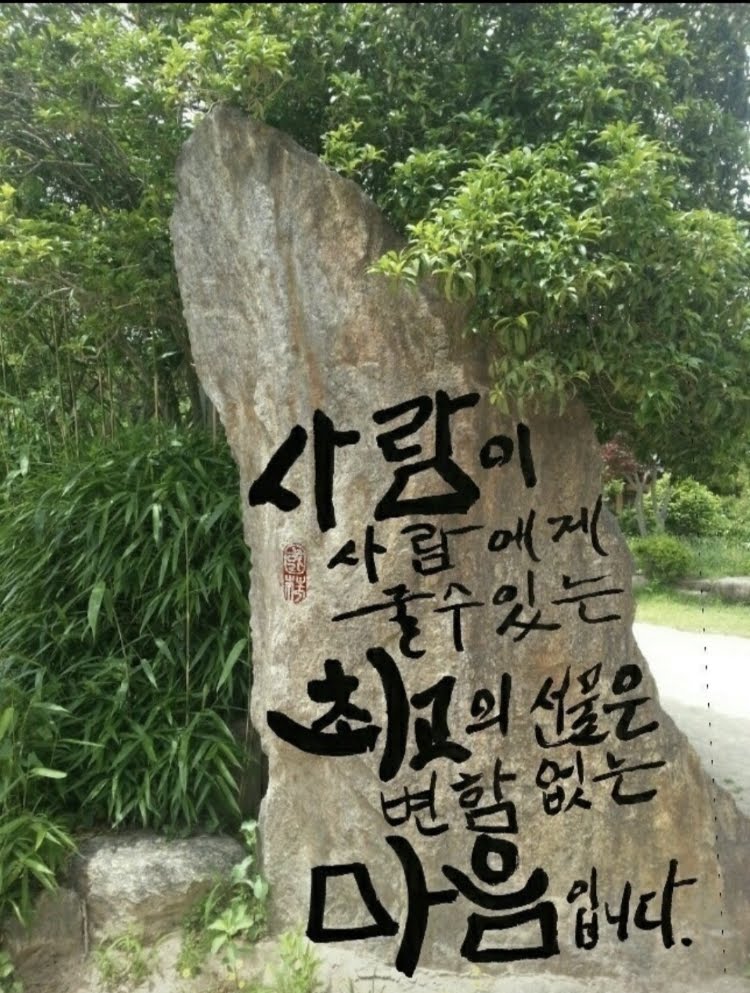 사람이
사람에게
줄 수 있는
최고의 선물은
변함 없는
마음입니다.